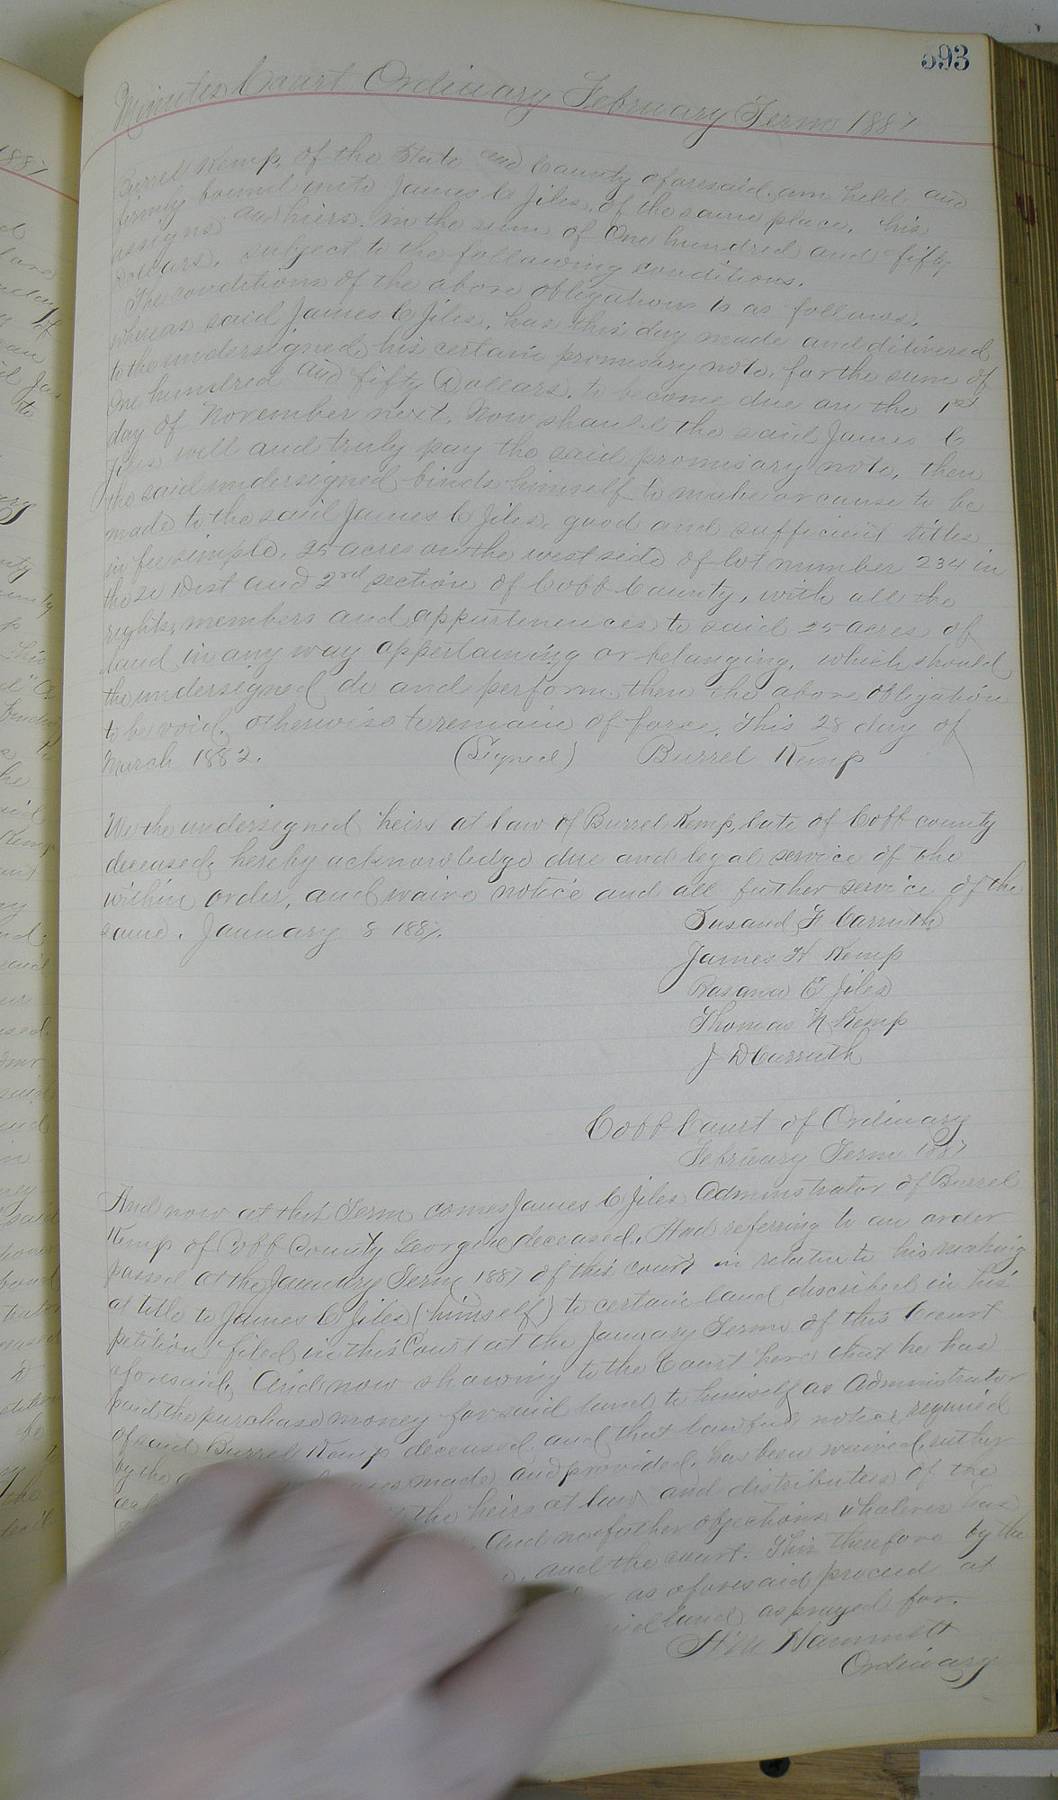 593
Minutes Court Ordinary February Term 1887
Burrel Kemp, of the State and County aforesaid, am held and
firmly bound unto James C Jiles, of the same place, his
assigns and hiers. in the sum of One hundred and fifty
Dollars, subject to the following conditions.
The conditions of the above obligations is as follows,
whereas said James C Jiles, has this day made and dilivered
to the undersigned, his certain promisary note, for the sum of
One hundred and fifty Dollars, to become due on the 1st
day of November next, Now should the said James C
Jiles well and truly pay the said promisary note, then
the said undersigned binds himself to make or cause to be
made to the said James C Jiles, good and sufficient titles
in fee simple, 25 acres on the west side of lot number 234 in
the 20 Dist and 2nd section of Cobb County, with all the
rights, members and appurtenences to said 25 acres of
land in any way appertaining or belonging, which should
the undersigned do and perform, then the above obligation
to be void, otherwise to remain of force, This 28 day of
March 1882. (Signed) Burrel Kemp
We the undersigned heirs at law of Burrel Kemp, late of Cobb county
deceased, hereby acknowledge due and legal service of the
within order, and waive notice and all further service of the
same. January 8 1887.
F Carruth
James H Kemp
E Jiles
Thomas N Kemp
J D Carruth
Cobb Court of Ordinary
February Term 1887
And now at this Term comes James C Jiles Administrator of Burrel
Kemp of Cobb County Georgia deceased, And referring to an order
passed at the January Term 1887 of this court in relation to his making
a title to James C Jiles (himself) to certain land discribed in his
petition filed in this Court at the January Term of this Court
aforesaid, And now showing to the Court here that he has
paid the purchase money for said land to himself as Administrator
of said Burrel Kemp deceased, and that lawful notice required
by the made and provided, has been waived,
the heirs at law and distributees of the
And no objections whatever has
and the court. This therefore by the
as aforesaid proceed at
land as prayed for.
Hammett
Ordinary